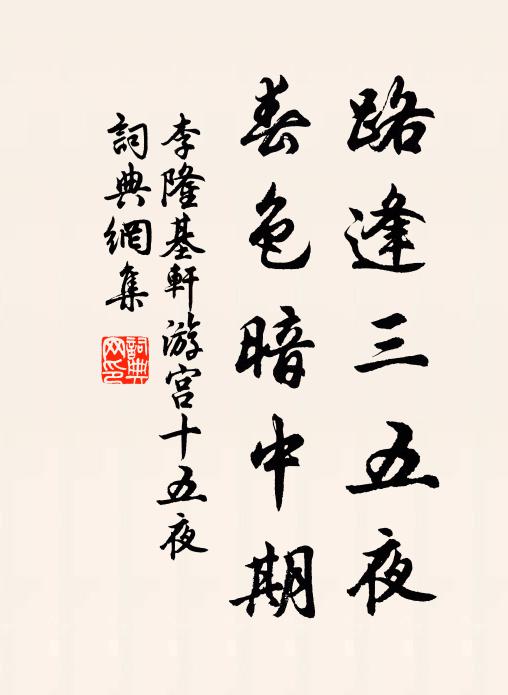 路逢三五夜
春色暗中期
李隆基軒游宮十五夜
詞典網集
詞典網印